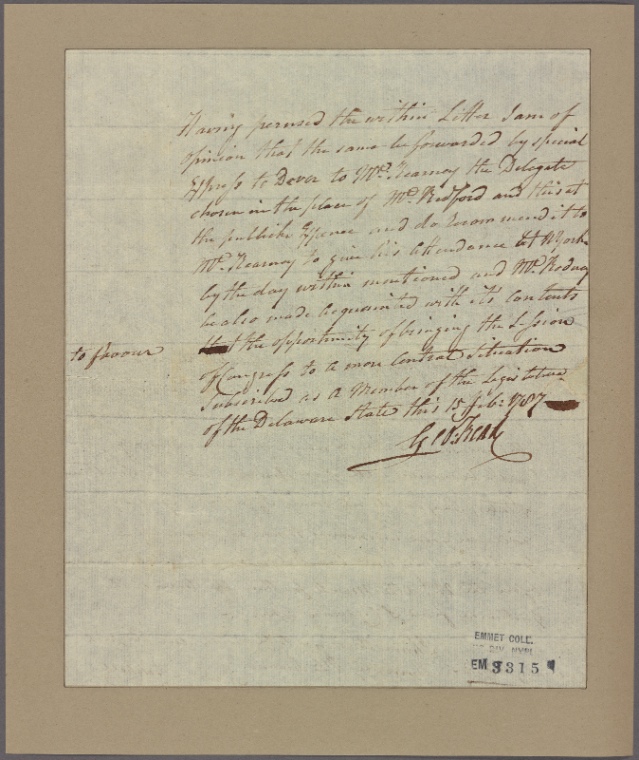 Having perused the within Letter I am of
opinion that the same be forwarded by special
Express to Dover to Mr. Kearney the Delegate
chosen in the place of Mr. Bedford and this at
the publick Expence and do recommend it to
Mr. Kearney to give his attendance at NYork
by the day within mentioned and Mr. Rodney
be also made acquainted with its Contents
to favour
the opportunity of bringing the Session
of Congress to a more Central Situation
Subscribed as a Member of the Legislature
of the Delaware State this 15 Feb: 1787
Geo: Read
EMMET COLL.
DIV. NYPL
EM 9315